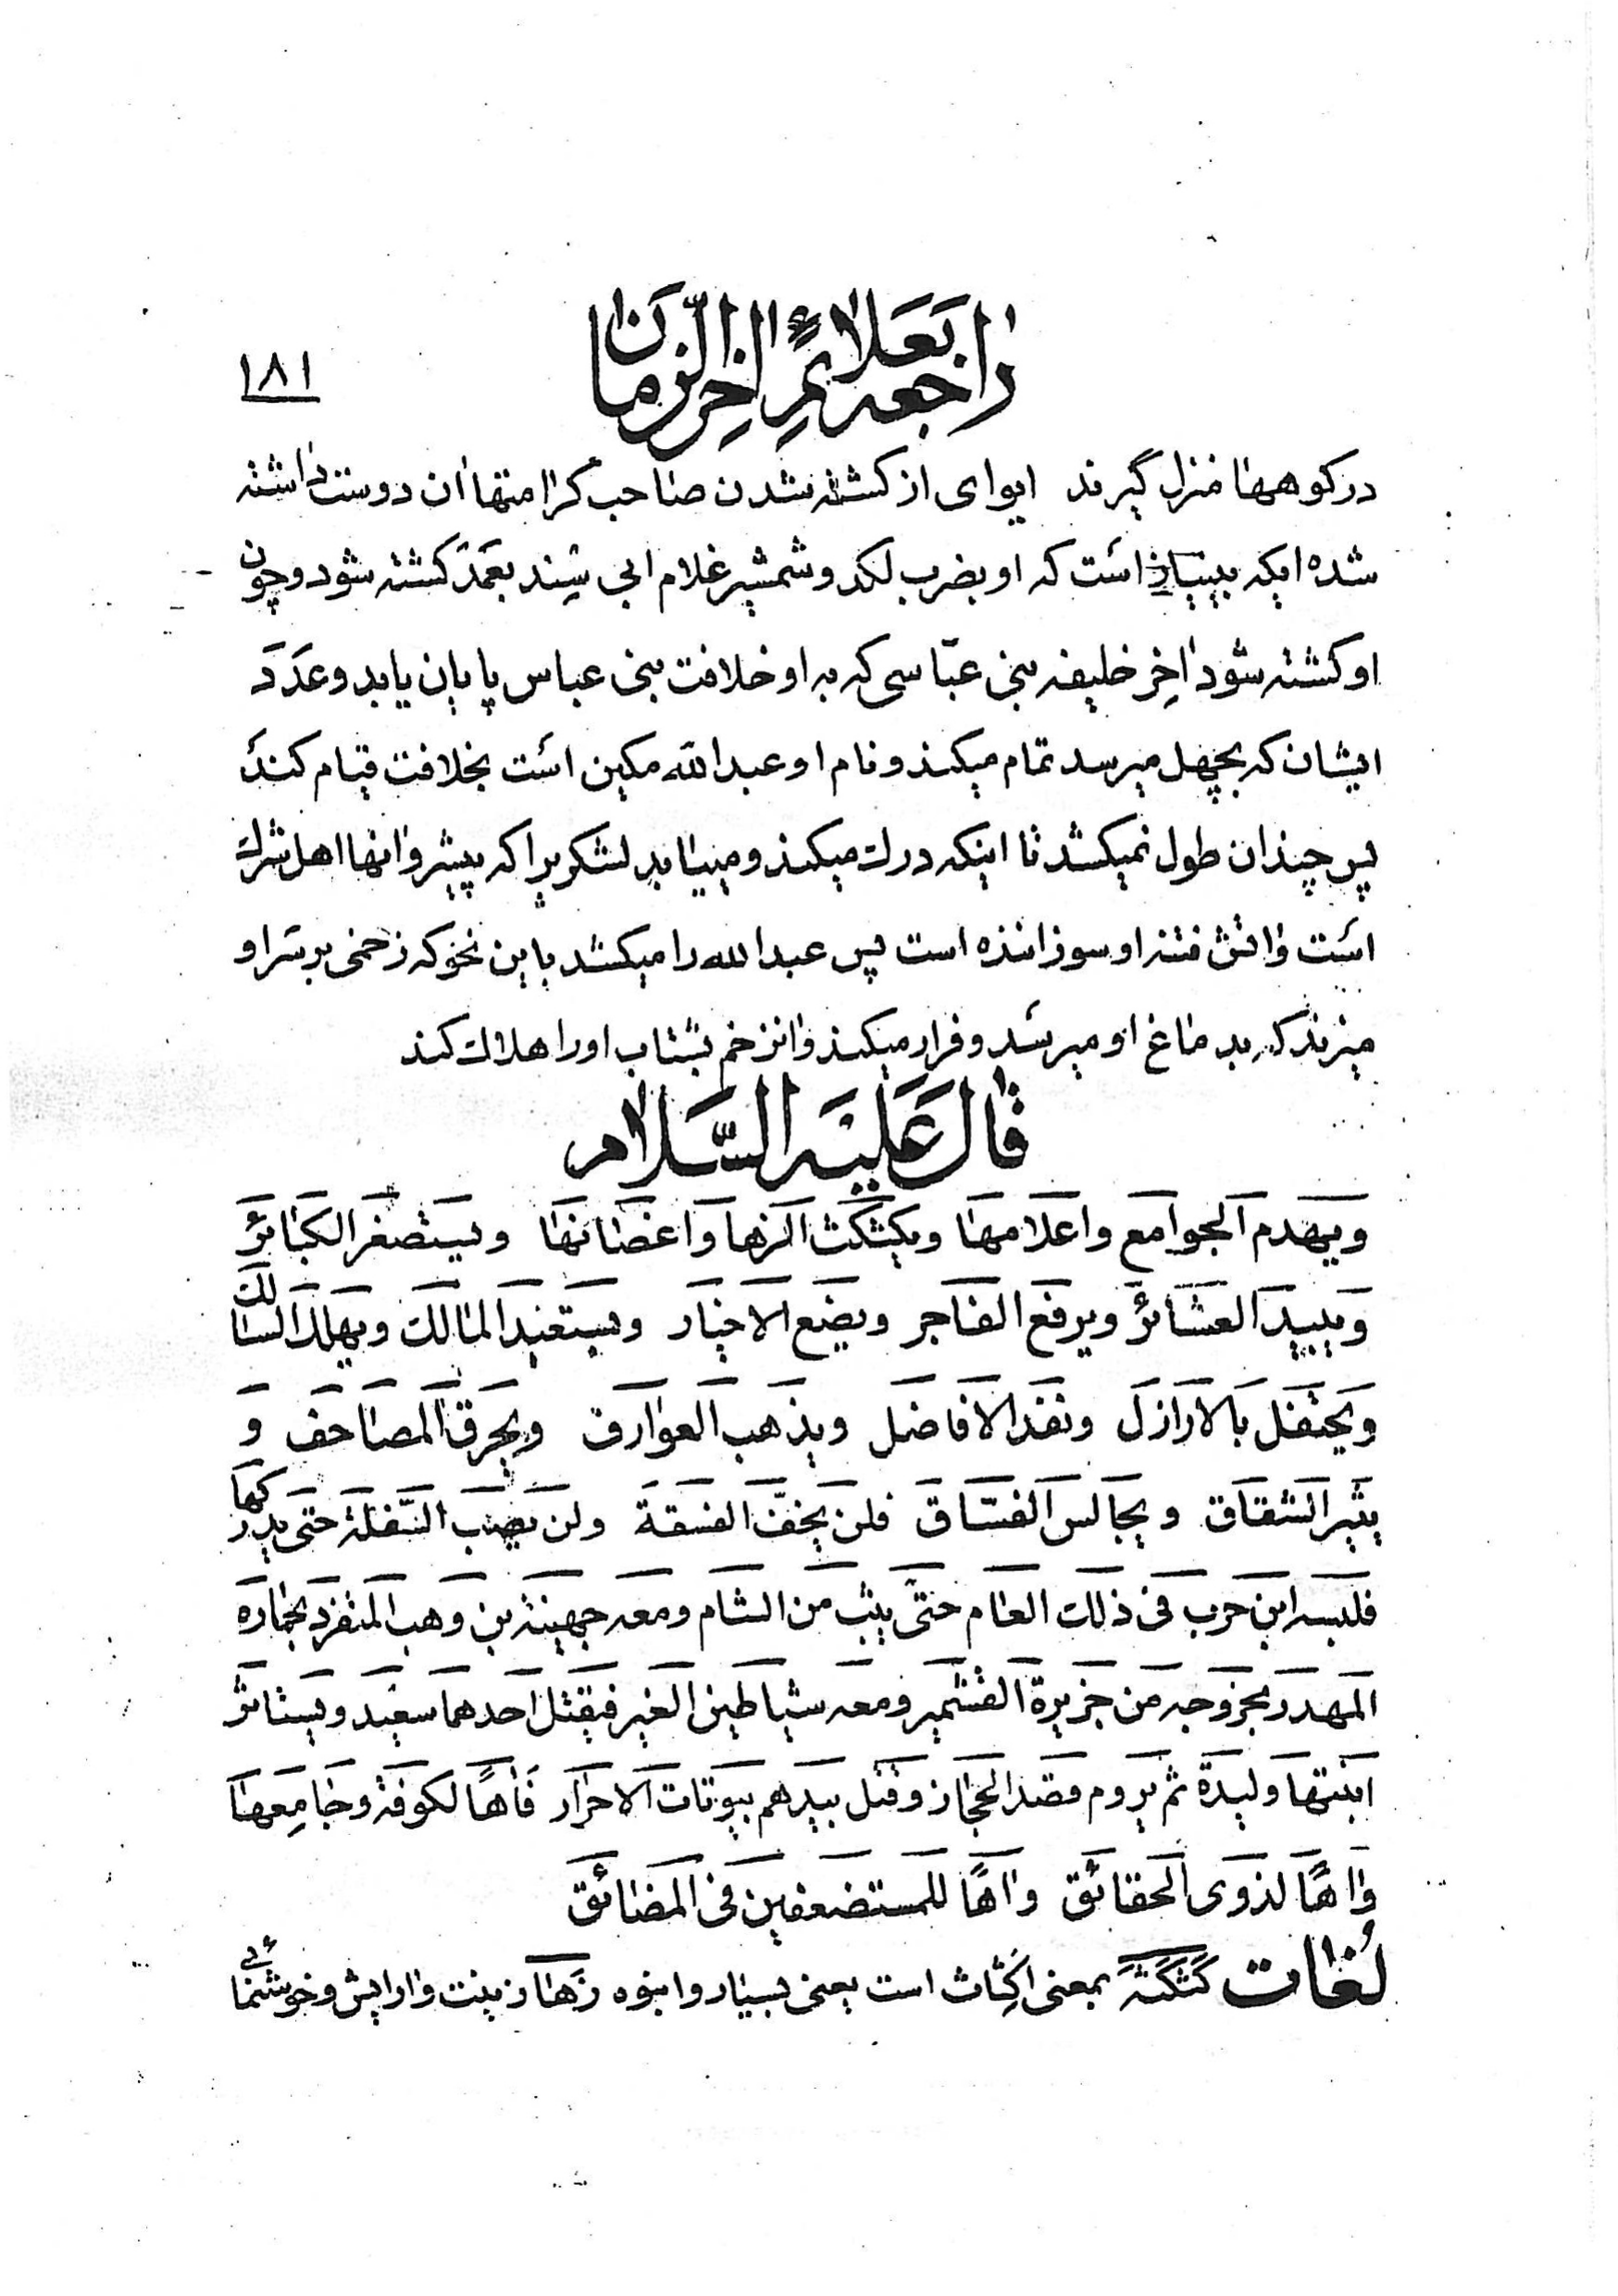 راجعه بعلائم اخر الزمان
۱۸۱
در کوهها منزل گیرند ایوای از کشته شدن صاحب کرامتها ان دوست داشته
شده ایکه بی‌نیاز است که او بضرب لکد و شمشیر غلام ابی سند بعمد کشته شود و چون
او کشته شود اخر خلیفه بنی عباسی که به او خلافت بنی عباس پایان یابد و عدد
ایشان که بچهل میرسد تمام میکند و نام او عبدالله مکین است بخلافت قیام کند
پس چندان طول نمیکشد تا اینکه درک میکند و مییابد لشکریرا که پیشروانها اهل شرک
است واتش فتنه او سوزاننده است پس عبدالله را میکشد باین نحو که زخمی بر سر او
میزند که بدماغ او میرسد و فرار میکند وانزخم بشتاب او را هلاک کند
قال علیه السلام
ویهدم الجوامع واعلامها ویکثکث الزها واغصانها ویستصغر الکبائر
ویبید العشائر ویرفع الفاجر ویضع الاخیار ویستعبد المالک ویهلک السالک
ویحتفل بالارازل ونفد الافاضل ویذهب العوارف ویحرق المصاحف و
یثیر الشقاق ویجالس الفساق فلن یخف الفسقة ولن یصب السفلة حتی یدرکها
فلبسه ابن حرب فی ذلک العام حتی یثب من الشام ومعه جهینة بن وهب المتفرد بحماره
المهدر بخروجه من جزیرة القشمیر ومعه شیاطین الغیر فیقتل احدهما سعید ویستاثر
ابنتها ولیدة ثم یروم قصد الحجاز وقتل بیدهم بیوتات الاحرار فاها لکوفة وجامعها
واها لذوی الحقائق واها للمستضعفین فی المضائق
لغات کثکثه بمعنی اکثاث است یعنی بسیار وانبوه زها زینت وارایش وخوشنمائی